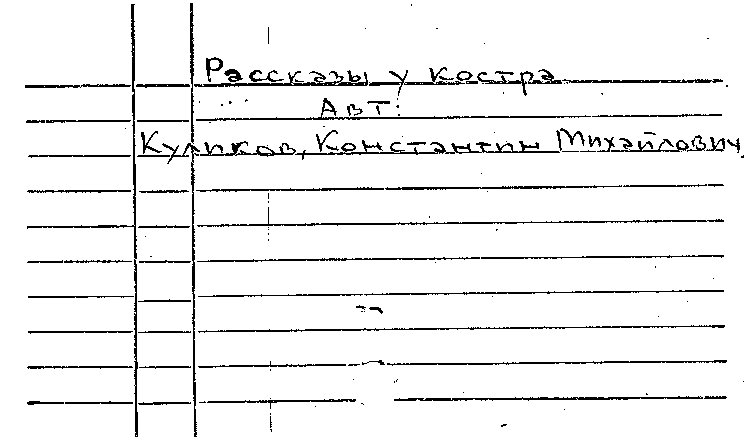 Рассказы у костра
Авт:
Куликов, Константин Михайлович